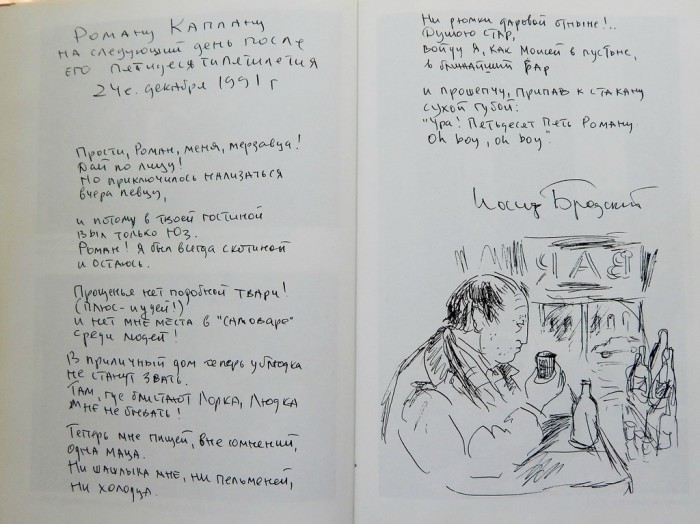 Роману Каплану
на следующий день после
его пятидесятипятилетия
24 с. декабря 1991 г
Прости, Роман, меня, мерзавца!
Дай по лицу!
Но приключилось нализаться
вчера певцу,
и потому в твоей гостиной
был только Юз.
Роман! Я был всегда скотиной
и остаюсь.
Прощенья нет подобной твари!
(плюс - иудей!)
и нет мне места в "Самоваре"
среди людей!
В приличный дом теперь ублюдка
не станут звать.
Там, где блистают Лорка, Людка
мне не бывать!
Теперь мне пищей, вне сомнений,
одна маца.
Ни шашлыка мне, ни пельменей,
ни холодца.
Ни рюмки даровой отныне!..
Душою стар,
войду я, как Моисей в пустыне,
в ближайший бар
и прошепчу, припав к стакану
сухой губой:
"Ура! Петьдесят Петь Роману
Oh boy, oh boy".
Иосиф Бродский
BAR